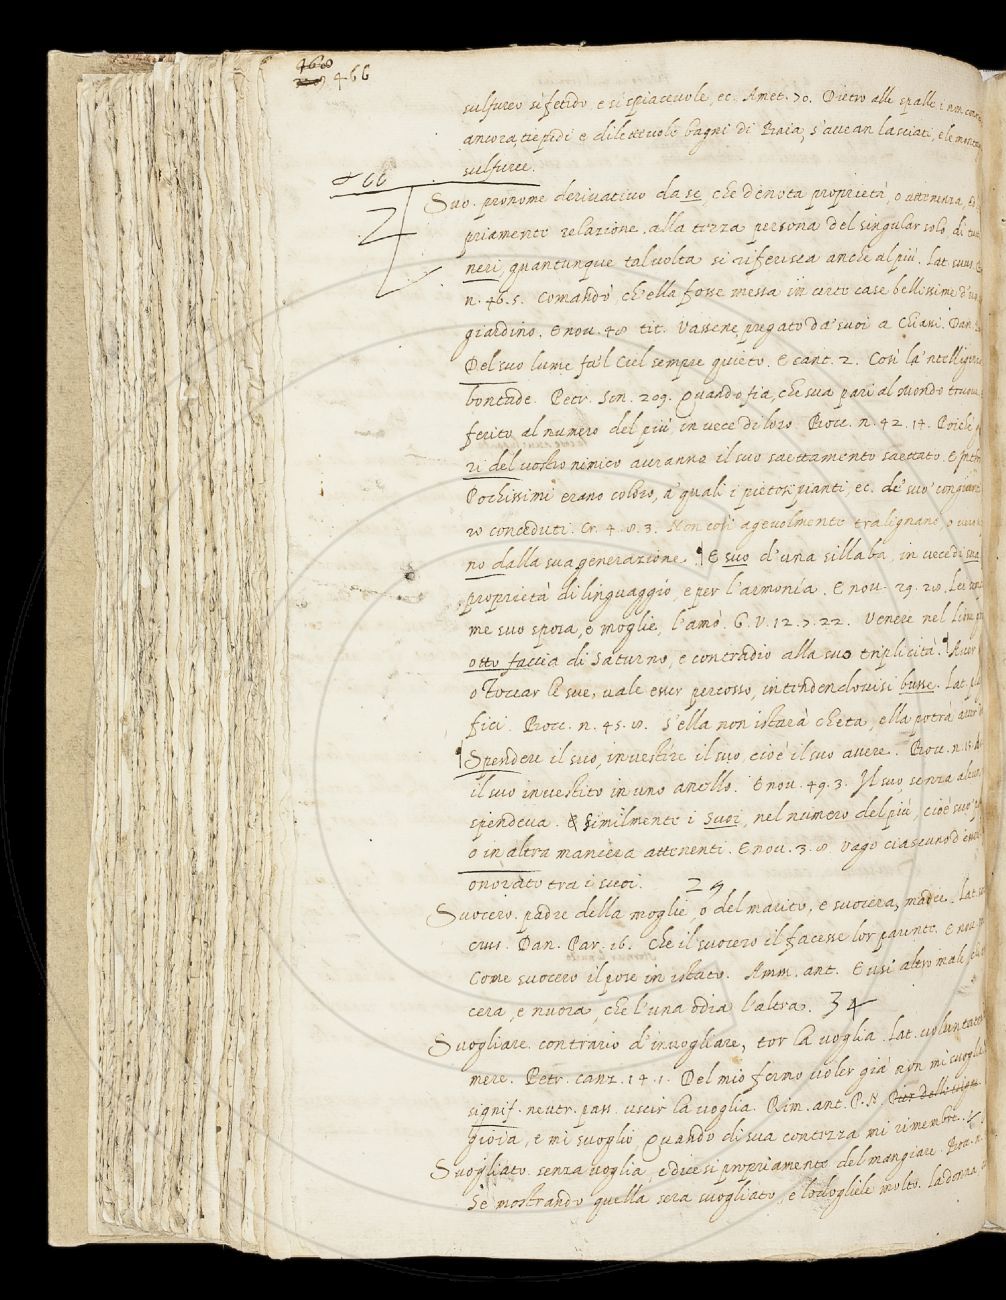 466
sulfureo sì fetido, e sì spiaceuole, ec. Amet. 70. Dietro alle spalle i non
ancora, tiepidi e dilettevoli bagni di Baia, s'auean lasciati, e le
sulfuree.
466
Suo. pronome deriuatiuo da se, che dinota proprietà, o attenenza,
priamente relazione alla terza persona del singular solo, di
neri, quantunque taluolta si riferisca anche al più. Lat. suus.
n. 46. 5. Comandò, ch'ella fosse messa in certe case bellissime d'un
giardino. E nou. 48. tit. Vassene pregato da' suoi a Chiassi. Dan.
Del suo lume fa 'l Ciel sempre quieto. E cant. 2. Così la 'ntelligenza
bontade. Petr. Son. 209. Quando fia, che sua pari al Mondo truoui
ferito al numero del più, in uece di loro. Bocc. n. 42. 14. Poichè
ri del uostro nimico auranno il suo saettamento saettato. E
Pochissimi erano coloro, a' quali i pietosi pianti, ec. de' suo' congiunti
ro conceduti. Cr. 4. 8. 3. Non così ageuolmente tralignano, o
no dalla sua generazione. E suo d'una sillaba, in uece di sua
proprietà di linguaggio, e per l'armonía. E nou. 29. 28. Lei
me suo sposa, e moglie, l'amò. G. V. 12. 7. 22. Venere nel
otto faccia di Saturno, e contradio alla suo triplicità.
o Toccar le sue, uale esser percosso, intendendouisi busse. Lat.
fici. Bocc. n. 45. 8. S'ella non istarà cheta, ella potrà
Spendere il suo, inuestire il suo, cioè il suo auere. Bocc. n. 15.
il suo inuestito in uno anello. E nou. 49. 3. Il suo, senza alcun
spendeua. E similmente i suoi, nel numero del più, cioè suo'
o in altra maniera attenenti. E nou. 3. 8. Vago ciascuno d'essere
onorato tra i suoi.
29
Suocero. padre della moglie, o del marito, e suocera, madre. Lat.
crus. Dan. Par. 16. Che il suocero il facesse lor parente. E nou.
Come suocero il pose in istato. Amm. ant. E usi altro mal
cera, e nuora, che l'una odia l'altra.
34
Suogliare. contrario d'inuogliare, tor la uoglia. Lat. uoluntatem
mere. Petr. canz. 14. 1. Del mio fermo uoler già non mi suoglia
signif. neutr. pass. uscir la uoglia. Rim. ant. P. N. Pier delle uigne
gioia, e mi suoglio Quando di sua contezza mi rimembre.
Suogliato. senza uoglia, e dicesi propriamente del mangiare.
Sè mostrando quella sera suogliato, e molto. La donna